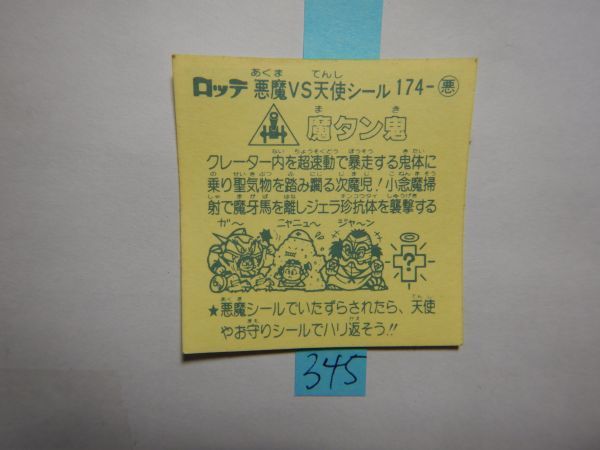 ロッテ 悪魔VS天使シール 174-悪
魔タン鬼
クレーター内を超速動で暴走する鬼体に
乗り聖気物を踏み躙る次魔児!小念魔掃
射で魔牙馬を離しジェラ珍抗体を襲撃する
ガ〜 ニャニュ〜 ジャ〜ン
?
★悪魔シールでいたずらされたら、天使
やお守りシールでハリ返そう!!
345